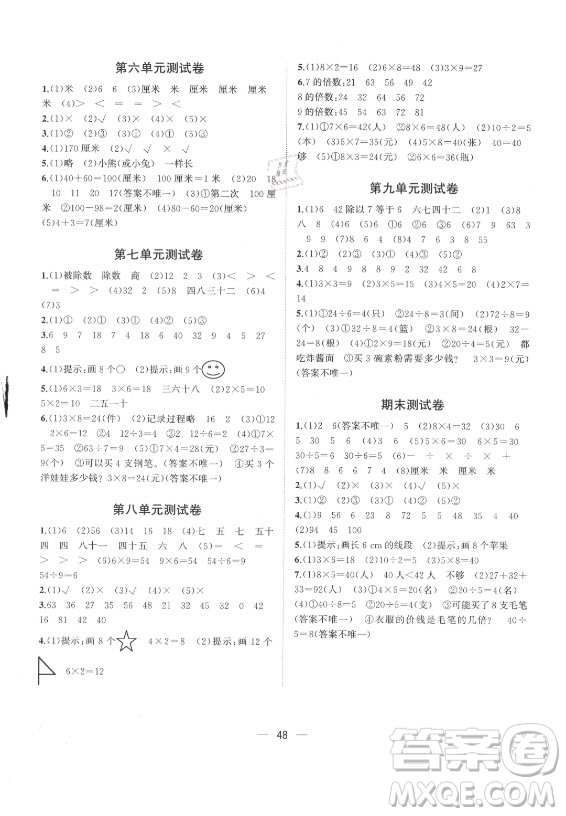 第六单元测试卷
1.(1)米 (2)6 (3)厘米 米 厘米 厘米
米 (4)> = < <
2.(1)× (2)√ (3)× (4)×
3.(1)② (2)① (3)② (4)③
4.(1)170厘米 (2)√
5.(1)略 (2)小熊(或小兔) 一样长
6.(1)40+60=100(厘米) (2)20 18
10 11 20 17(答案不唯一) (3)①第二次
②100-98=2(厘米) (4)80厘米
(5)4+3=7(厘米)
第七单元测试卷
1.(1)被除数 除数 商 (2)12 2 3 (3)> <
= > > (4)9 (5)8 四八三十二 (6)4
(7)3
2.(1)① (2)② (3)① (4)①
3.6 9 7 18 7 4 20 36 32 9 4 5 27
8 5
4.(1)提示:画3个○ (2)提示:画9个
5.(1)6×3=18 3×6=18 三六十八 (2)2×5=10
5×2=10 二五一十
6.(1)3×8=24(件) (2)记录过程略 16 2 (3)12
2×6=12 ②63÷7=9(元) (4)①54÷6=
9(个) ②可以买4支钢笔。(答案不唯一) ④买3个
洋娃娃多少钱?3×8=24(元)(答案不唯一)
第八单元测试卷
1.(1)6 (2)54÷9=6 (3)14 16 18 (4)七 五 七 五十
四 四 八十一 四十五 六 (5)= < = < = >
= > (6)6×9=54 9×6=54 54÷9=6
54÷6=9
2.(1)√ (2)× (3)√ (4)×
3.63 36 27 35 6 7 9 9 8 42 0
16 81 42 40
4.(1)提示:画8个 4×2=8 (2)提示:画12个
6×2=12
5.(1)8×2=16 (2)6×8=48 (3)3×9=27
6.7的倍数:21 63 49 42
8的倍数:24 32 64 56 72
9的倍数:63 54 72 90
7.(1)①7×6=42(人) ②8×6=48(人) (2)10÷2=5
(本) (3)①5×8=40(元) ②3×8=24(元)
够 (4)①10÷5=2 ②7×6=36(瓶)
第九单元测试卷
1.(1)6 42除以7等于6 六七四十二 (2)1 (3)8
八 8 (4)① (5)6 3 (6)> = > < (7)8
9 9 (8)8 2 5 9
2.(1)① (2)② (3)② (4)③
3.4 9 72 7 8 48 9 6 8 6 5 9
4.(1)3×3=9 (2)4×5=20 (3)6÷3=2 (4)2×7=
14
5.(1)①24÷6=4(只) ②24÷8=3(只) (2)①72÷8=
9(个) ②64÷8=8(篮) (3)①8×3=24(根)
②6×4=24(根) (4)①24÷3=8(元) 不能 都
吃炸酱面 ③买3碗素粉需要多少钱? 3×3=9(元)
(答案不唯一)
期末测试卷
1.(1)2 6(答案不唯一) (2)8×4=32 (3)6
5 30 5 30 6 (4)① ② (5)6×5=30
30÷5=6 30÷6=5 (6)= < > =
(7)8 (8)厘米 厘米 米 厘米
2.(1)√ (2)× (3)× (4)√
3.(1)① (2)③ (3)② (4)①
4.(1)9 56 8 9 35 5 28 4 40
(2)94 45 100
5.(1)提示:画长6 cm的线段 (2)提示:画8个苹果
6.(1)③ ② ①
7.(1)5×8=40(人) 42>40 不够 (2)27+32+
33=92(人) (3)①20÷4=5(名) ②10÷2=5(名)
(4)①40÷5=8(元) ②可能买了8支毛笔
(答案不唯一) ④衣服的价钱是毛笔的几倍? 40÷
5=8(答案不唯一)
48
答案圈
MXQE.COM